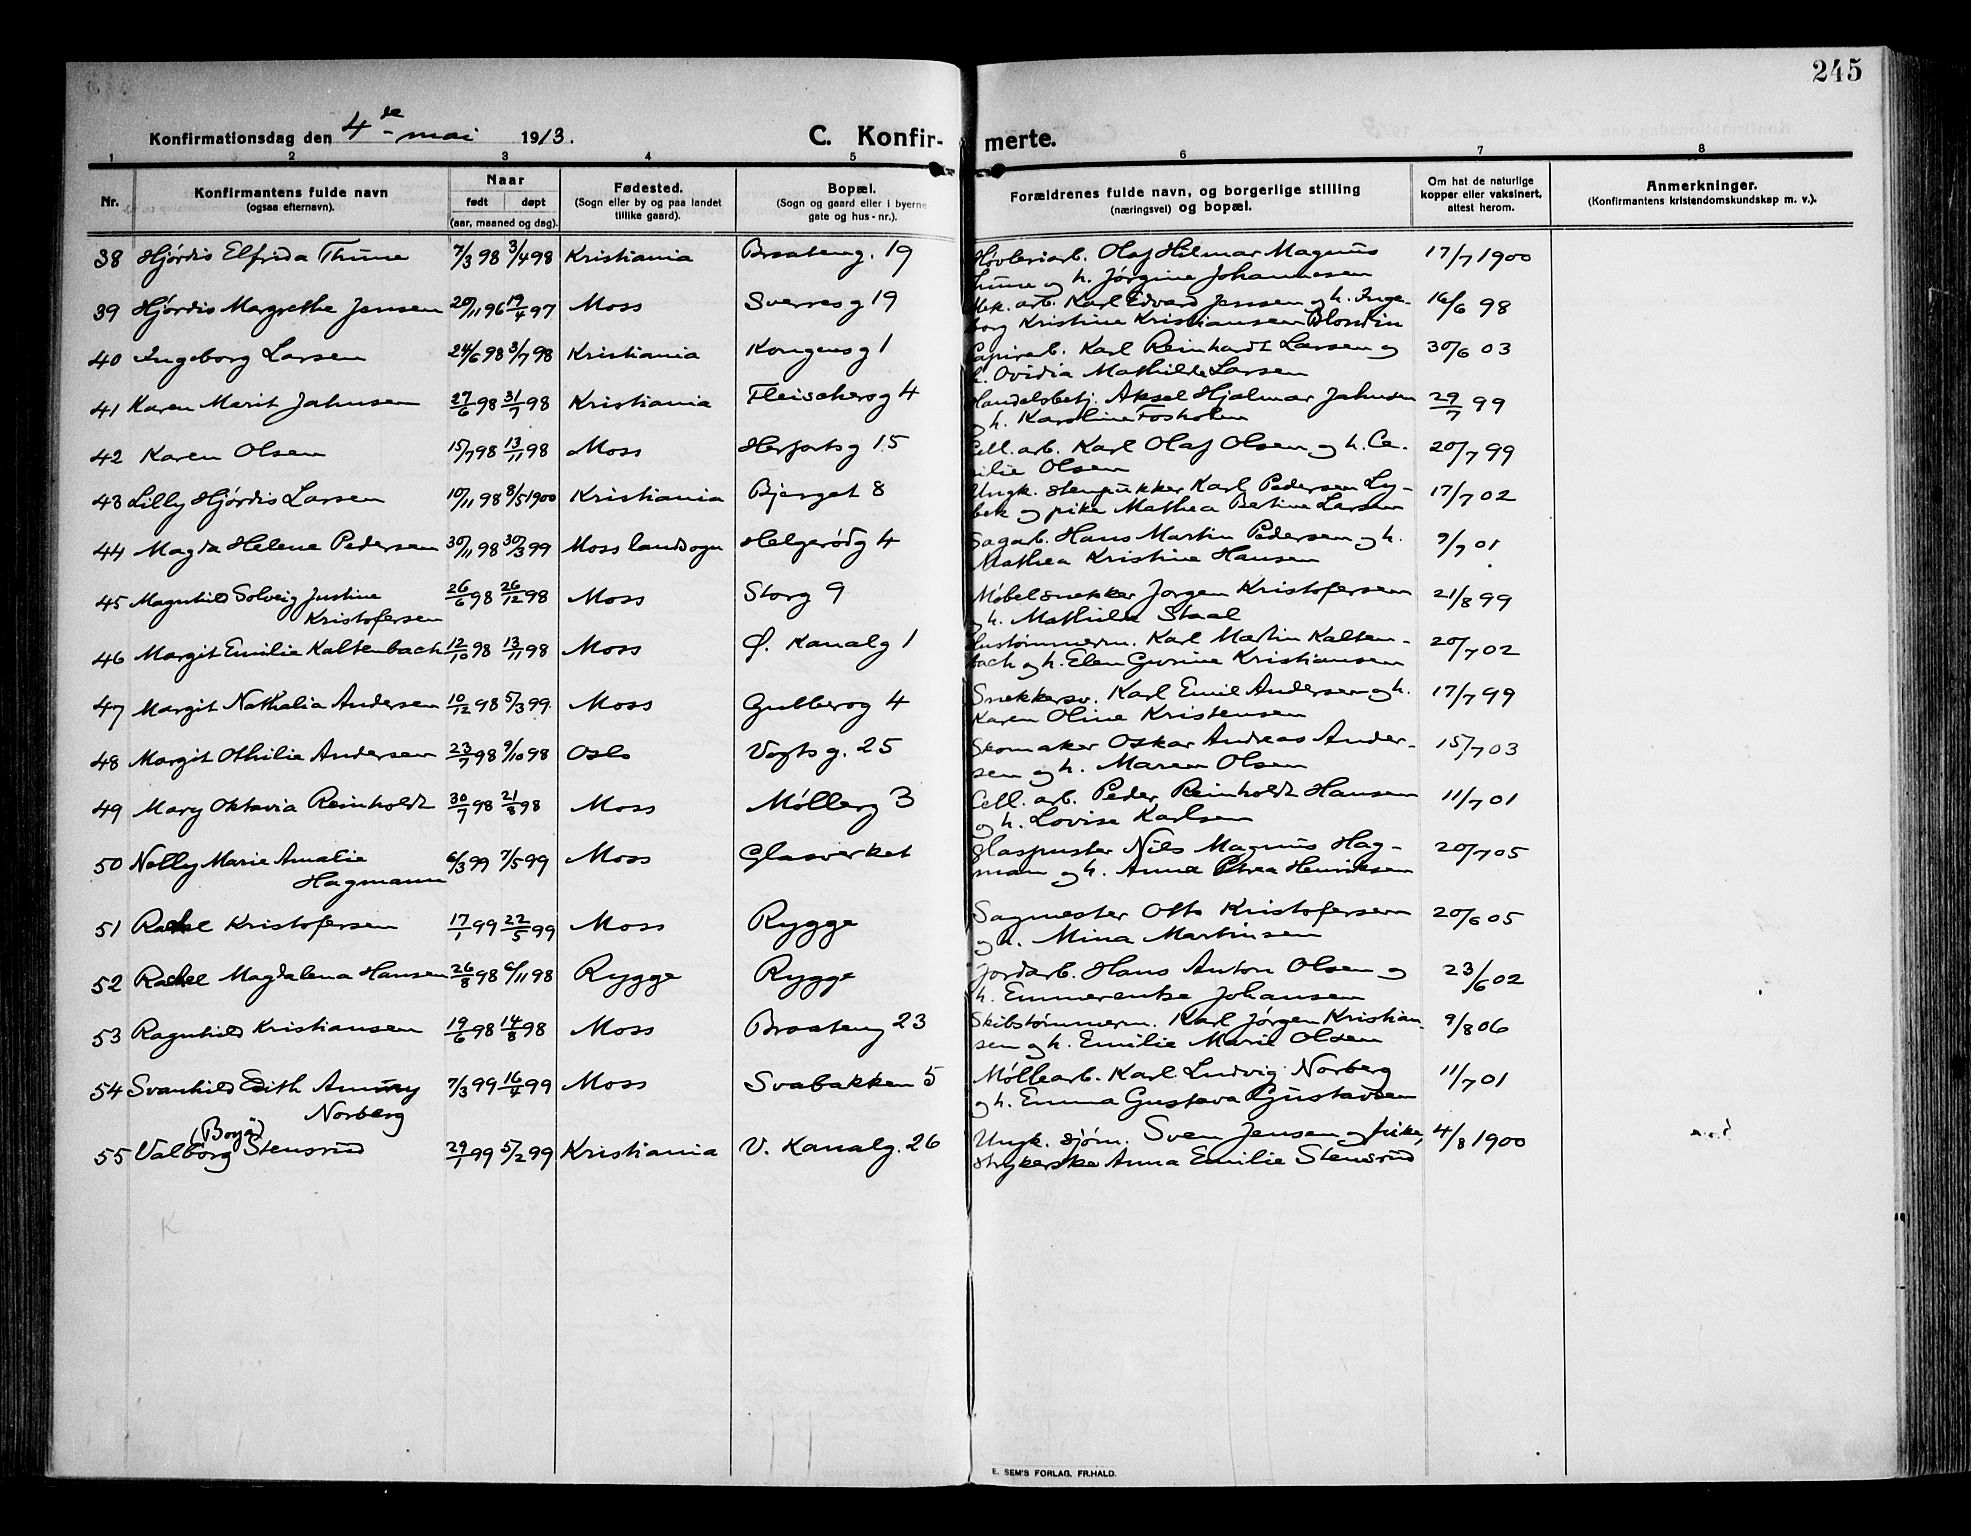 245
Konfirmationsdag den 4de mai 1913. C. Konfir- merte.
1 2 3 4 5 6 7 8
Nr. Konfirmantens fulde navn (ogsaa efternavn). Naar født døpt (aar, maaned og dag). Fødested. (Sogn eller by og paa landet tillike gaard). Bopæl. (Sogn og gaard eller i byerne gate og hus-nr.). Forældrenes fulde navn, og borgerlige stilling (næringsvei) og bopæl. Om hat de naturlige kopper eller vaksinert, attest herom. Anmerkninger. (Konfirmantens kristendomskundskap m. v.).
38 Hjørdis Elfrida Thune 7/3 98 3/4 98 Kristiania Braateng. 19 Høvleriarb. Olaf Hilmar Magnus 17/7 1900
Thune og h. Jørgine Johannesen
39 Hjørdis Margrethe Jensen 20/11 96 19/4 97 Moss Sverresg 19 Mek. arb. Karl Edvard Jensen og h. Inge- 16/6 98
borg Kristine Kristiansen Blondin
40 Ingeborg Larsen 24/6 98 3/7 98 Kristiania Kongensg 1 Papirarb. Karl Reinhardt Larsen og 30/6 03
h. Ovidia Mathilde Larsen
41 Karen Marit Jahnsen 27/6 98 31/7 98 Kristiania Fleischersg 4 Handelsbetj. Aksel Hjalmar Jahnsen 29/7 99
og h. Karoline Fosholm
42 Karen Olsen 15/7 98 13/11 98 Moss Herfortsg 15 Cell. arb. Karl Olaf Olsen og h. Ce- 20/7 99
cilie Olsen
43 Lilly Hjørdis Larsen 10/11 98 8/5 1900 Kristiania Bjerget 8 Ungk. stenpukker Karl Pedersen Ly- 17/7 02
bek og pike Mathea Betine Larsen
44 Magda Helene Pedersen 30/11 98 30/3 99 Moss landsogn Helgerødg 4 Sagarb. Hans Martin Pedersen og h. 9/7 01
Mathea Kristine Hansen
45 Magnhild Solveig Justine 26/6 98 26/12 98 Moss Storg 9 Møbelsnekker Jørgen Kristofersen 21/8 99
Kristofersen og h. Mathilde Staal
46 Margit Emilie Kaltenbach 12/10 98 13/11 98 Moss Ø. Kanalg 1 Hustømmerm. Karl Martin Kalten- 20/7 02
bach og h. Elen Gurine Kristiansen
47 Margit Nathalia Andersen 10/12 98 5/3 99 Moss Gulberog 4 Snekkersv. Karl Emil Andersen og h. 17/7 99
Karen Oline Kristensen
48 Margit Othilie Andersen 23/7 98 9/10 98 Oslo Vogtsg. 25 Skomaker Oskar Andreas Ander- 15/7 03
sen og h. Maren Olsen
49 Mary Oktavia Reinholdt 30/7 98 21/8 98 Moss Møllerg 3 Cell. arb. Peder Reinholdt Hansen 11/7 01
og h. Lovise Karlsen
50 Nelly Marie Amalie 6/3 99 7/5 99 Moss Glasverket Glaspuster Nils Magnus Hag- 20/7 05
Hagmann man og h. Anna Petrea Henriksen
51 Rachel Kristofersen 17/1 99 22/5 99 Moss Rygge Sagmester Otto Kristofersen 20/6 05
og h. Mina Martinsen
52 Rachel Magdalena Hansen 26/8 98 6/11 98 Rygge Rygge Jordarb. Hans Anton Olsen og 23/6 02
h. Emmerentse Johansen
53 Ragnhild Kristiansen 19/6 98 14/8 98 Moss Braateng 23 Skibstømmerm. Karl Jørgen Kristian- 9/8 06
sen og h. Emilie Marie Olsen
54 Svanhild Edith Ammy 7/3 99 16/4 99 Moss Svabakken 5 Møllearb. Karl Ludvig Norberg 11/7 01
Norberg og h. Emma Gustava Gustavsen
(Borja)
55 Valborg Stensrud 29/1 99 5/2 99 Kristiania V. Kanalg. 26 Ungk. sjøm. Sven Jensen og pike, 4/8 1900
strykerske Anna Emilie Stensrud
K
E. SEM'S FORLAG, FR.HALD.